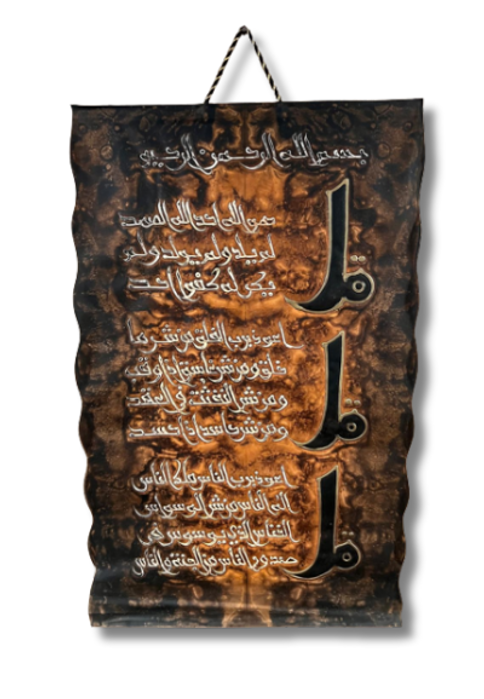 بسم الله الرحمن الرحيم
قل هو الله احد الله الصمد
لم يلد ولم يولد ولم
يكن له كفوا احد
قل اعوذ برب الفلق من شر ما
خلق ومن شر غاسق اذا وقب
ومن شر النفثت في العقد
ومن شر حاسد اذا حسد
قل اعوذ برب الناس ملك الناس
اله الناس من شر الوسواس
الخناس الذي يوسوس في
صدور الناس من الجنة والناس